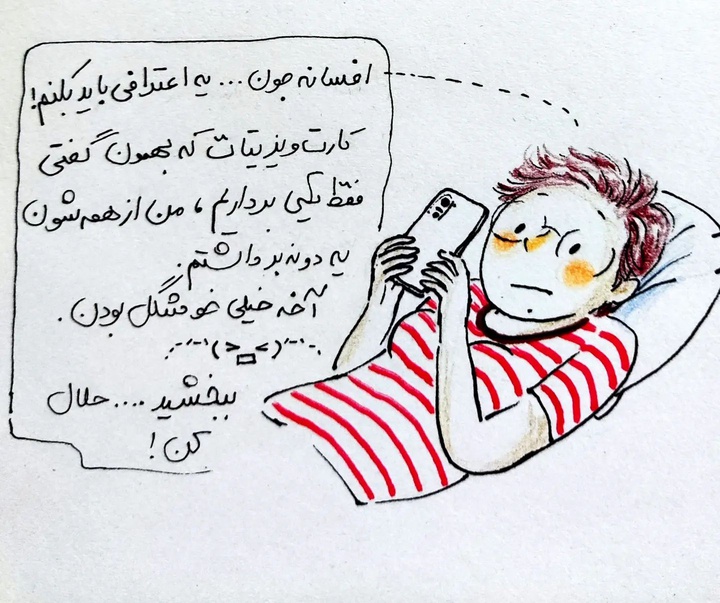 افسانه جون... یه اعترافی باید بکنم!
کارت ویزیتات که بهمون گفتی
فقط یکی برداریم، من از همه‌شون
یه دونه برداشتم.
آخه خیلی خوشگل بودن.
(>_<)
ببخشید.... حلال
کن!